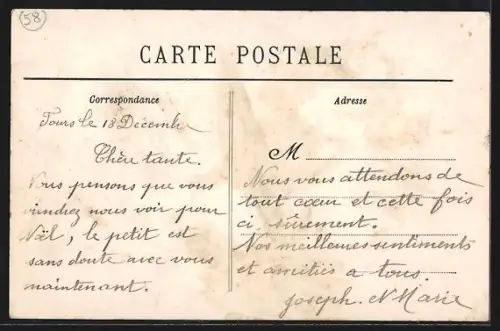 58
CARTE POSTALE
Correspondance
Tours le 18 Décembre
Chère tante.
Nous pensons que vous
viendrez nous voir pour
Noël, le petit est
sans doute avec vous
maintenant.
Adresse
M
Nous vous attendons de
tout cœur et cette fois
ci sûrement.
Nos meilleures sentiments
et amitiés a tous.
Joseph et Marie